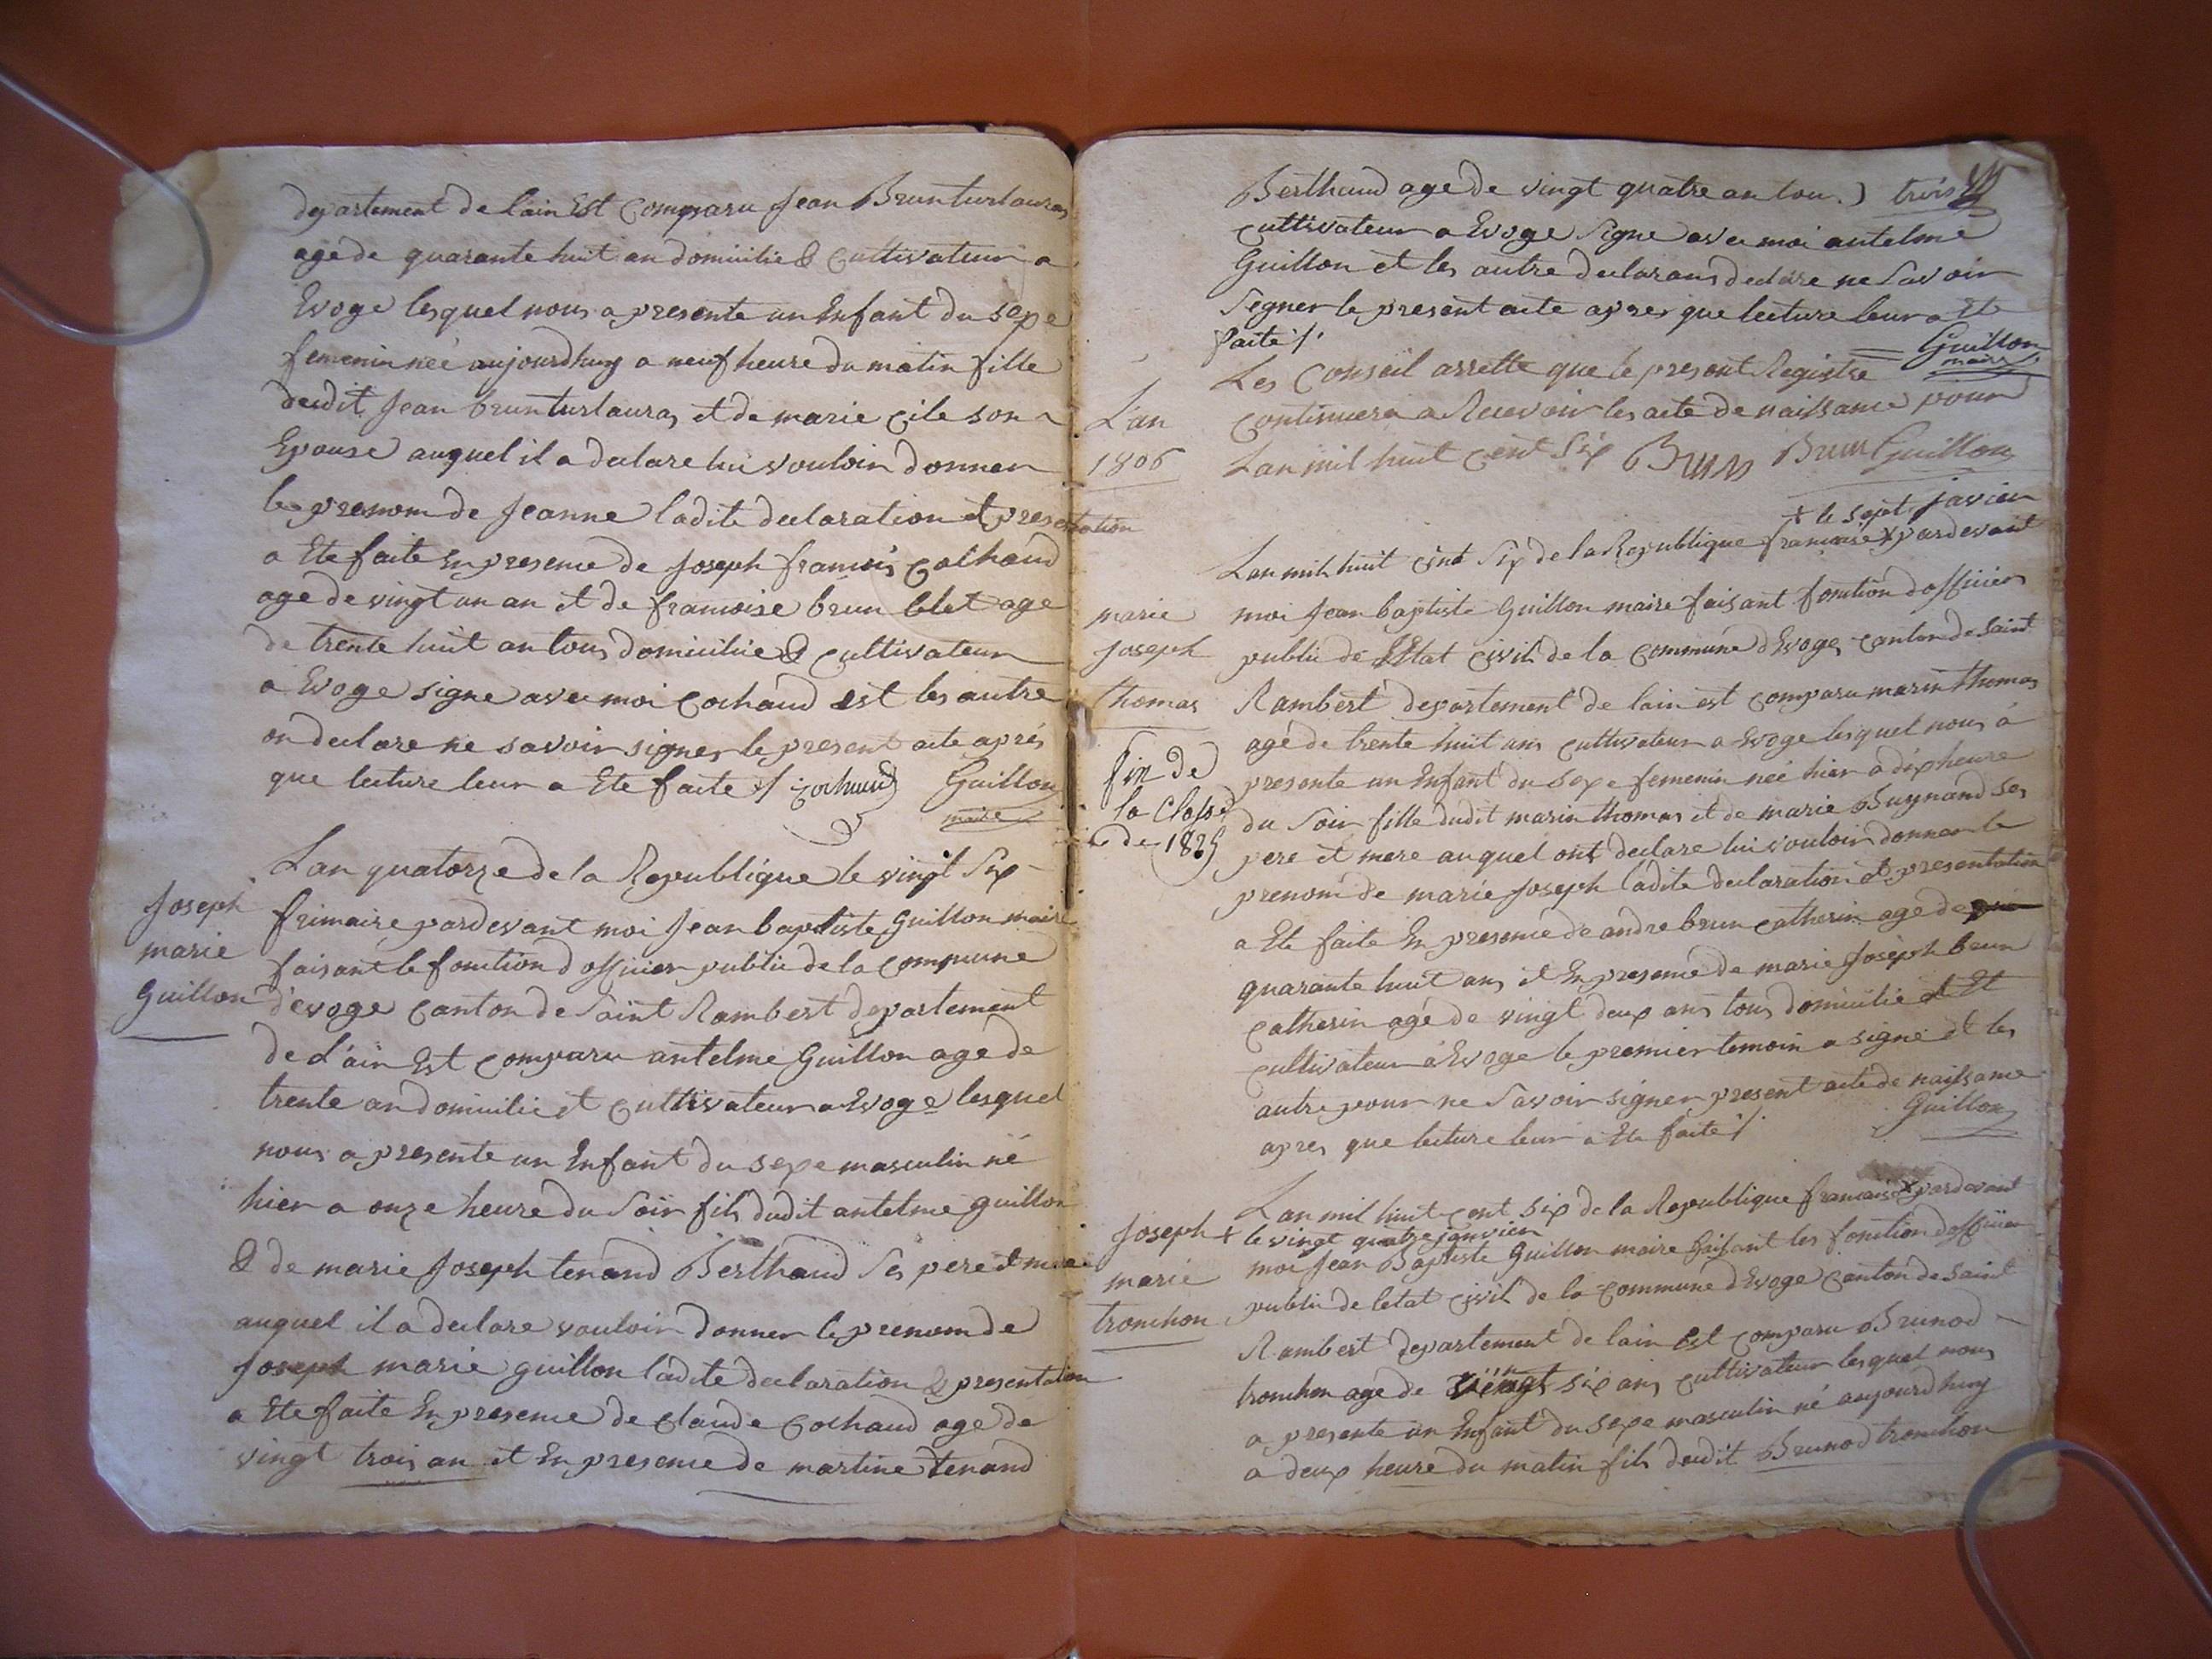 departement de lain Est Comparu Jean Brunturlauras
agé de quarante huit an domicilié & Cultivateur a
Evoge lesquel nous a presente un Enfant du sexe
femenin neé aujourdhuy a neuf heure du matin fille
dudit Jean brunturlauras et de marie cile son
Epouse auquel il a declare lui vouloir donner
le prenom de Jeanne ladite declaration et presentation
a Ete faite En presence de Joseph francois Cochaud
age de vingt un an et de francoise brun blet age
de trente huit an tous domicilié & Cultivateur
a Evoge signe avec moi Cochaud est les autre
on declare ne savoir signer le present acte aprés
que lecture leur a Ete faite / Cochaud Guillon
maire
Joseph
marie
Guillon
Lan quatorze de la Republique le vingt Six
frimaire pardevant moi Jean baptiste Guillon maire
faisant le fonction d officier public de la Commune
d'evoge Canton de Saint Rambert departement
de L'ain Est Comparu antelme Guillon age de
trente an domicilie et Cultivateur a Evoge lesquel
nous a presente un Enfant du sexe masculin né
hier a onze heure du Soir fils dudit antelme guillon
& de marie Joseph tenand Berthaud Ses pere et mere
auquel il a declare vouloir donner le prenom de
Joseph marie guillon ladite declaration & presentation
a Ete faite En presence de Claude Cochaud age de
vingt trois an et En presence de martine tenand
Berthaud age de vingt quatre an tous trois
Cultivateur a Evoge Signe avec moi antelme
Guillon et les autre declarans declare ne Savoir
Segner le present acte apres que lecture leur a Ete
faite /.
Guillon
maire
L'an
1806
Les Conseil arrette que le present Registre
Continuera a Recevoir les acte de naissance pour
Lan mil huit Cent Six Brun Brun Guillon
+ le sept javier
marie
Joseph
thomas
Lan mil huit Cent Six de la Republique francaise + pardevant
moi Jean baptiste Guillon maire faisant fonction dofficier
public de LEtat Civil de la Commune dEvoge Canton de Saint
Rambert departement de lain est Comparu marin thomas
agé de trente huit ans Cultivateur a Evoge lesquel nous á
presente un Enfant du sexe femenin neé hier a dix heure
du Soir fille dudit marin thomas et de marie Buynand Ses
pere et mere auquel ont declare lui vouloir donner le
prenom de marie Joseph ladite declaration et presentation
a Ete faite En presence de andre brun catherin age de
quarante huit ans et En presence de marie Joseph brun
Catherin agé de vingt deux ans tous domicilié et Et
Cultivateur á Evoge le premier temoin a signé et les
autre pour ne Savoir signer present acte de naissance
apres que lecture leur a Ete faite / Guillon
fin de
la Classe
de 1825
Joseph
marie
tronchon
Lan mil huit Cent Six de la Republique francaise + pardevant
+ le vingt quatre janvier
moi Jean Baptiste Guillon maire faisant les fonction dofficier
public de letat Civil de la Commune dEvoge Canton de Saint
Rambert departement de lain Est Comparu Brunod
tronchon agé de vingt six ans Cultivateur lesquel nous
a presente un Enfant du sexe masculin né aujourdhuy
a deux heure du matin fils dudit Brunod tronchon